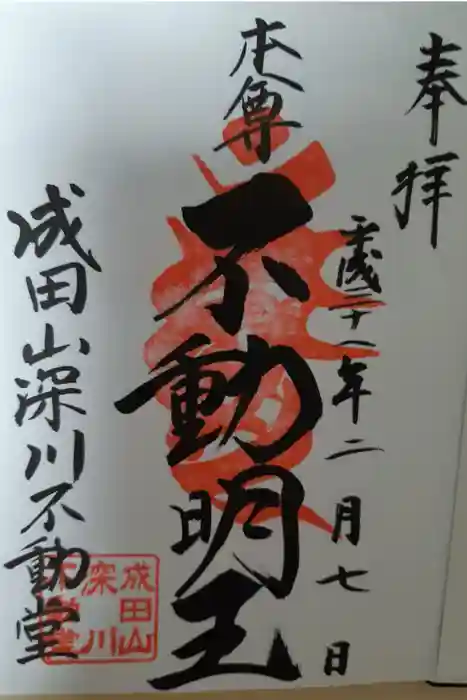 奉拝
平成二十一年二月七日
本尊
不動明王
成田山深川不動堂
成田山
深川
不動堂